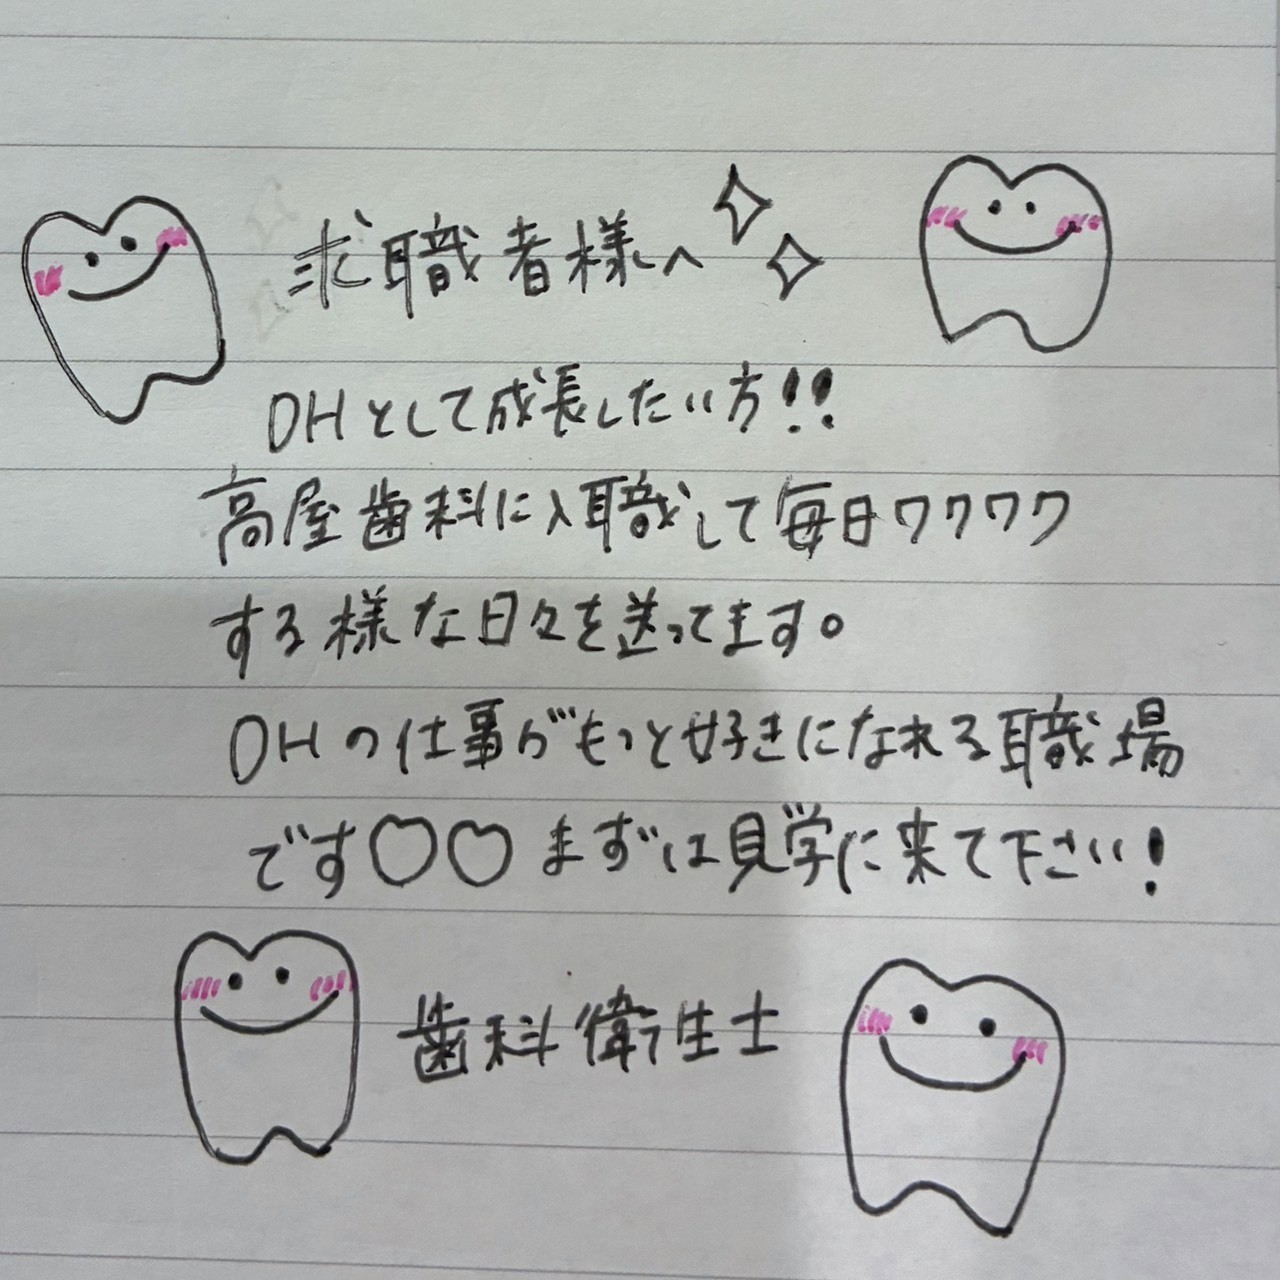 求職者様へ
DHとして成長したい方!!
高屋歯科に入職して毎日ワクワク
する様な日々を送ってます。
DHの仕事がもっと好きになれる職場
です♡♡まずは見学に来て下さい!
歯科衛生士